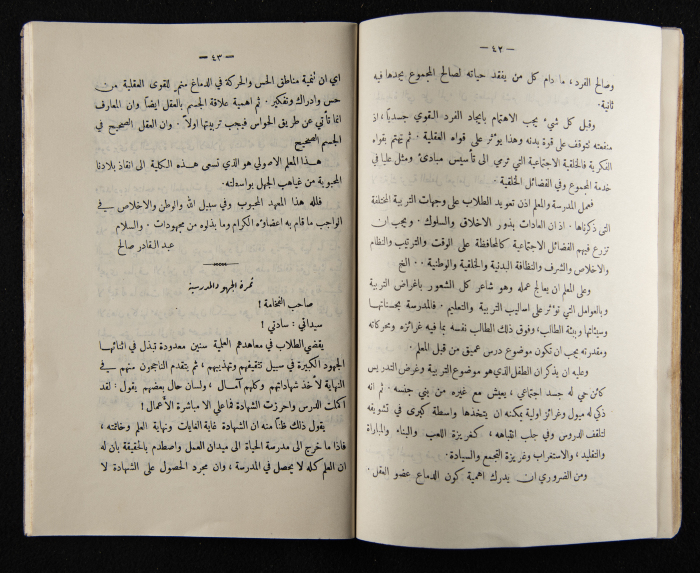 — ٤٢ —
وصالح الفرد ، ما دام كل من يفقد حياته لصالح المجموع يجدها فيه
ثانية .
وقبل كل شيء يجب الاهتمام بايجاد الفرد القوي جسدياً ، اذ
منفعته تتوقف على قوة بدنه وهذا يؤثر على قواه العقلية . ثم تهتم بقواه
الفكرية فالخلقية الاجتماعية التي ترمي الى تأسيس مبادئ ومثل عليا في
خدمة المجموع وفي الفضائل الخلقية .
فعمل المدرسة والمعلم اذن تعويد الطلاب على وجهات التربية المختلفة
التي ذكرناها . اذ ان العادات بذور الاخلاق والسلوك . ويجب ان
تزرع فيهم الفضائل الاجتماعية كالمحافظة على الوقت والترتيب والنظام
والاخلاص والشرف والنظافة البدنية والخلقية والوطنية ٠٠ الخ
وعلى المعلم ان يعالج عمله وهو شاعر كل الشعور باغراض التربية
وبالعوامل التي تؤثر على اساليب التربية والتعليم . فالمدرسة بحسناتها
وسيئاتها وبيئة الطالب ، وفوق ذلك الطالب نفسه بما فيه غرائزه ومحركاته
ومقدرته يجب ان تكون موضوع درس عميق من قبل المعلم .
وعليه ان يذكر ان الطفل الذي هو موضوع التربية وغرض التدريس
كائن حي له جسد اجتماعي ، يعيش مع غيره من بني جنسه . ثم انه
ذكي له ميول وغرائز اولية يمكنه ان يتخذها واسطة كبرى في تشويقه
لتلقف الدروس وفي جلب انتباهه ، كغريزة اللعب والبناء والمباراة
والتقليد ، والاستغراب وغريزة التجمع والسيادة .
ومن الضروري ان يدرك اهمية كون الدماغ عضو العقل .
— ٤٣ —
اي ان تنمية مناطق الحس والحركة في الدماغ منمٍ للقوى العقلية من
حس وادراك وتفكير . ثم اهمية علاقة الجسم بالعقل ايضاً وان المعارف
انما تأتي عن طريق الحواس فيجب تربيتها اولاً . وان العقل الصحيح في
الجسم الصحيح
هذا المعلم الاصولي هو الذي تسعى هذه الكلية الى انقاذ بلادنا
المحبوبة من غياهب الجهل بواسطته .
فلله هذا المعهد المحبوب وفي سبيل الله والوطن والاخلاص في
الواجب ما قام به اعضاؤه الكرام وما بذلوه من مجهودات . والسلام
عبد القادر صالح
ثمرة الجهود المدرسية
صاحب الفخامة !
سيداتي : سادتي !
يقضي الطلاب في معاهدهم العلمية سنين معدودة تبذل في اثنائها
الجهود الكبيرة في سبيل تثقيفهم وتهذيبهم ، ثم يتقدم الناجحون منهم في
النهاية لاخذ شهاداتهم وكلهم آمـال ، ولسان حال بعضهم يقول : لقد
اكملت الدرس واحرزت الشهادة فما علي الا مباشرة الأعمال !
يقول ذلك ظناً منه ان الشهادة غاية الغايات ونهاية العلم وخاتمته ،
فاذا ما خرج الى مدرسة الحياة الى ميدان العمل واصطدم بالحقيقة بان له
ان العلم كله لا يحصل في المدرسة ، وان مجرد الحصول على الشهادة لا